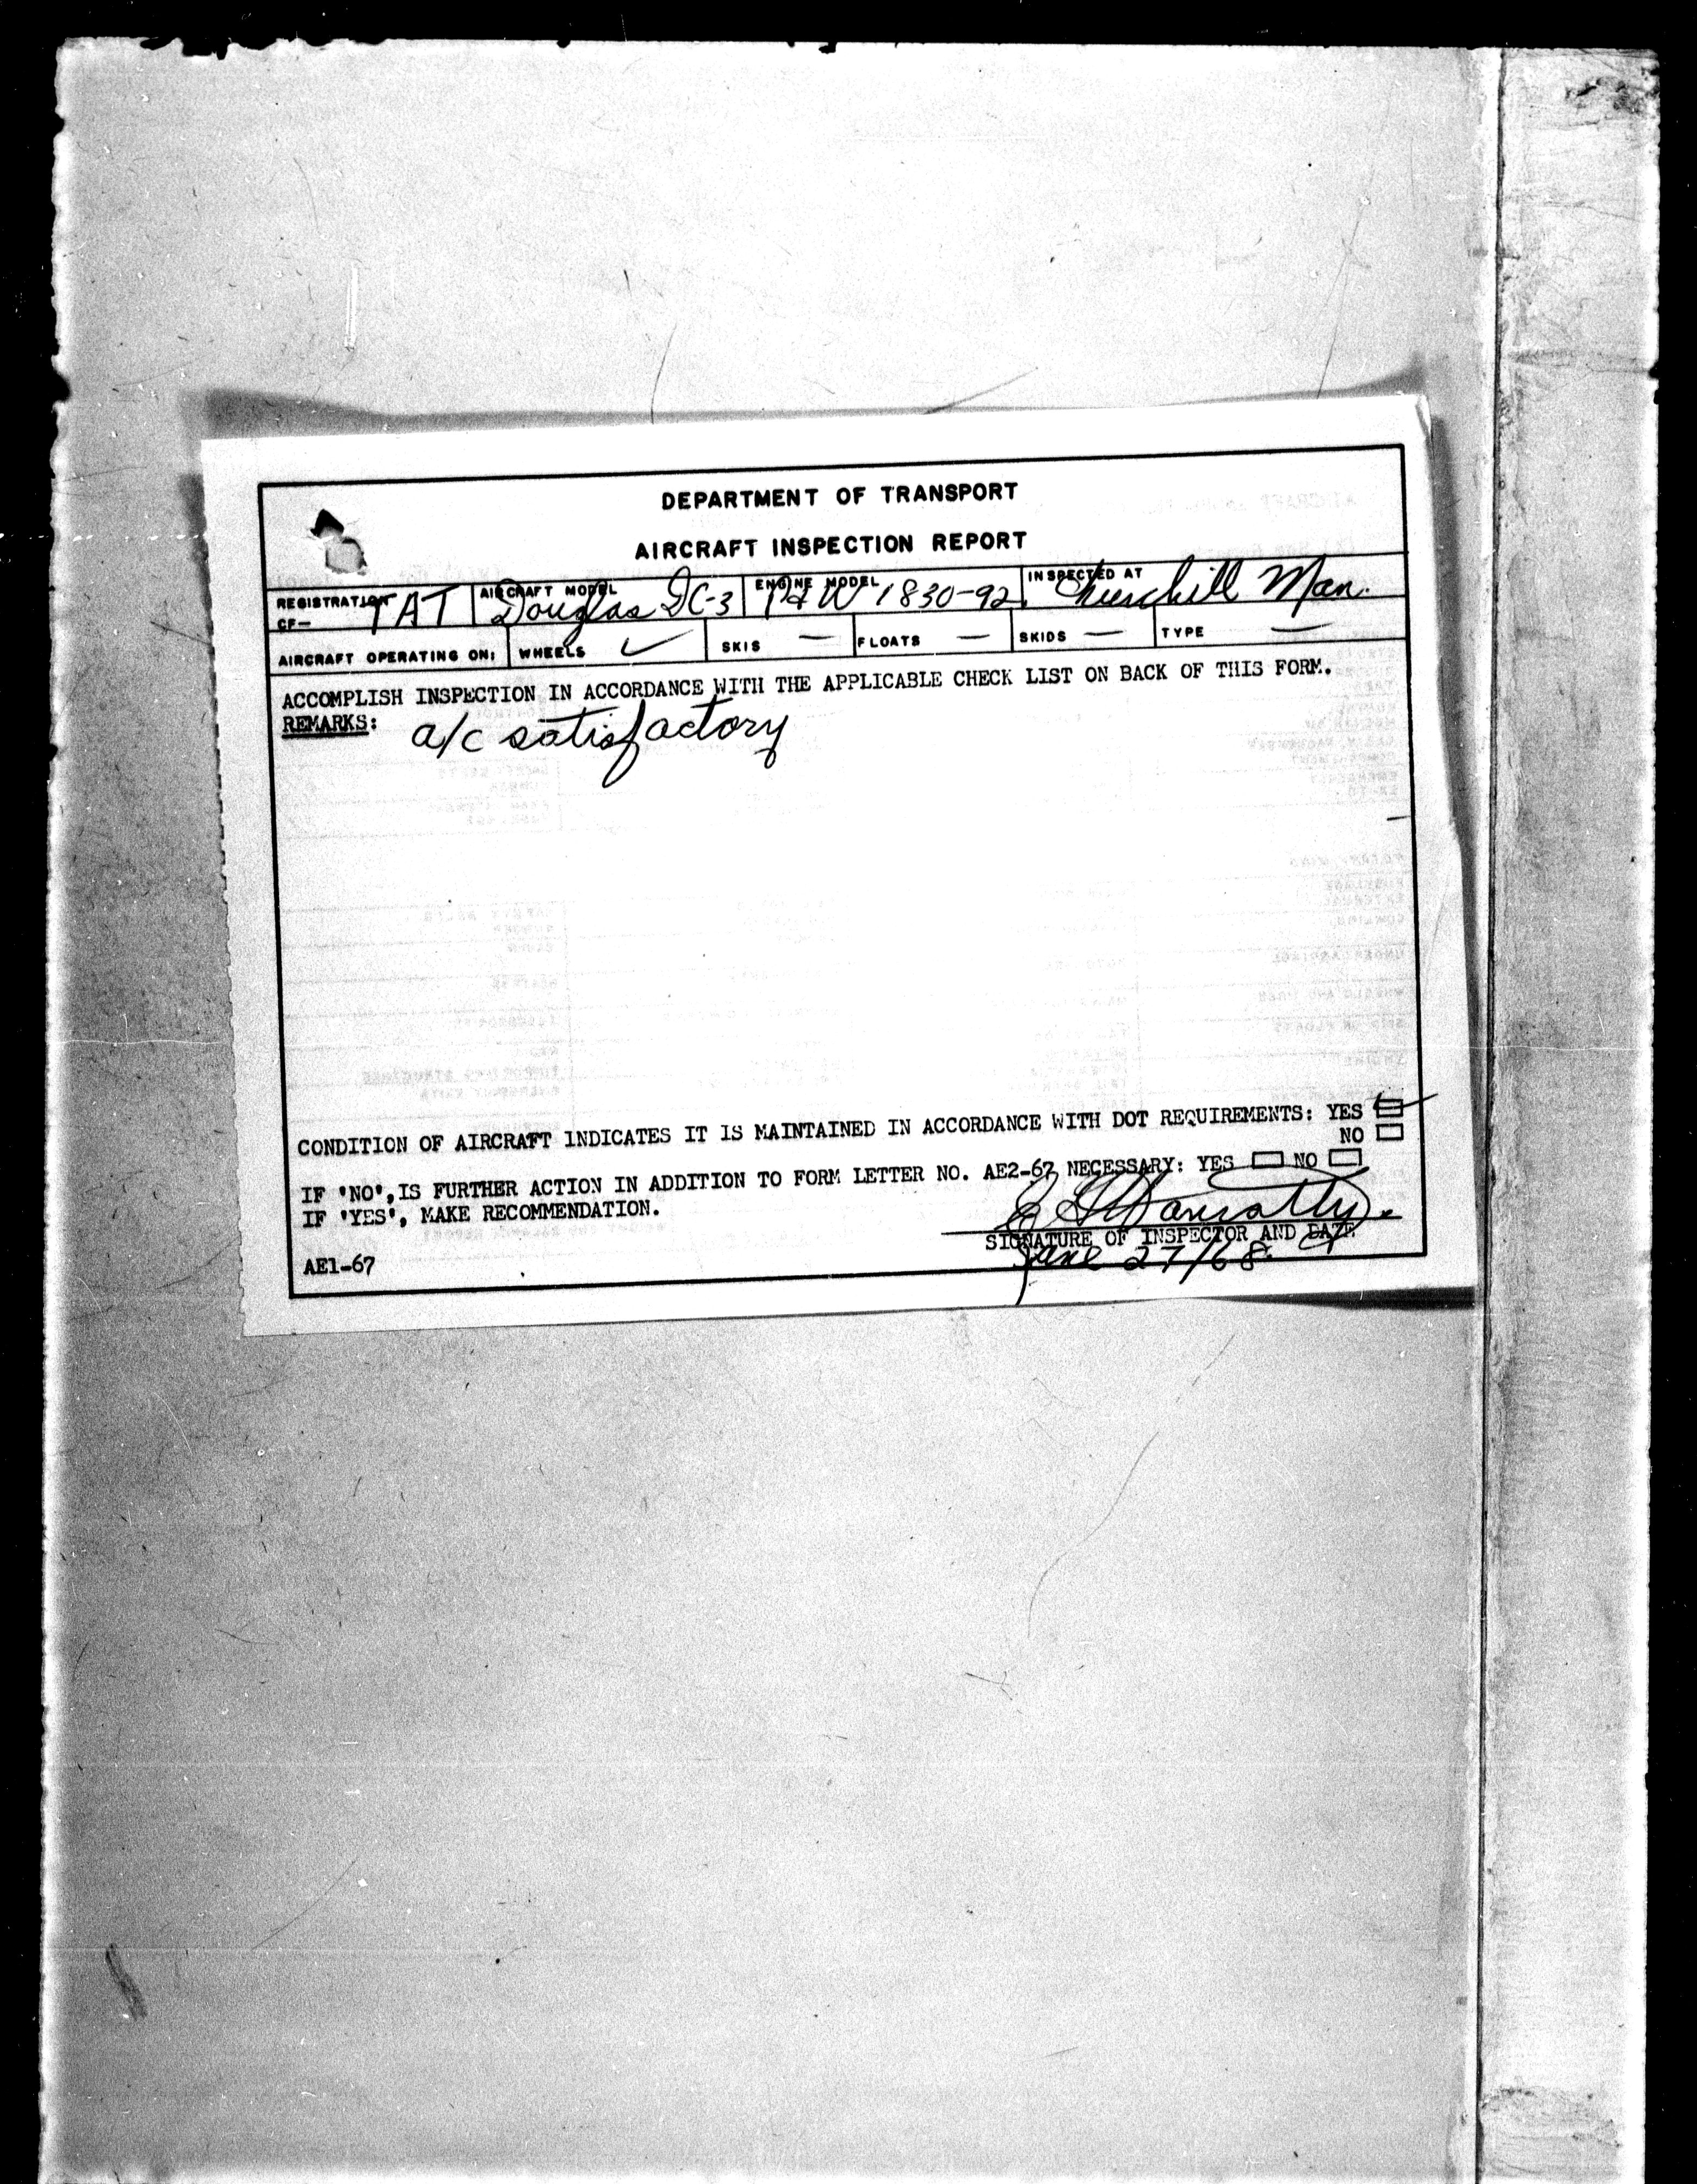 DEPARTMENT OF TRANSPORT
AIRCRAFT INSPECTION REPORT
REGISTRATION CF- TAT AIRCRAFT MODEL Douglas DC-3 ENGINE MODEL P&W 1830-92 INSPECTED AT Churchill Man.
AIRCRAFT OPERATING ON: WHEELS ✓ SKIS — FLOATS — SKIDS — TYPE —
ACCOMPLISH INSPECTION IN ACCORDANCE WITH THE APPLICABLE CHECK LIST ON BACK OF THIS FORM.
REMARKS: a/c satisfactory
CONDITION OF AIRCRAFT INDICATES IT IS MAINTAINED IN ACCORDANCE WITH DOT REQUIREMENTS: YES
NO
IF 'NO', IS FURTHER ACTION IN ADDITION TO FORM LETTER NO. AE2-67 NECESSARY: YES NO
IF 'YES', MAKE RECOMMENDATION.
SIGNATURE OF INSPECTOR AND DATE
June 27/68
AE1-67